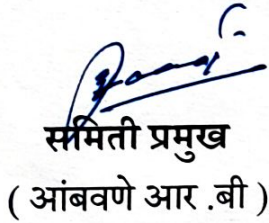 समिती प्रमुख
( आंबवणे आर .बी )